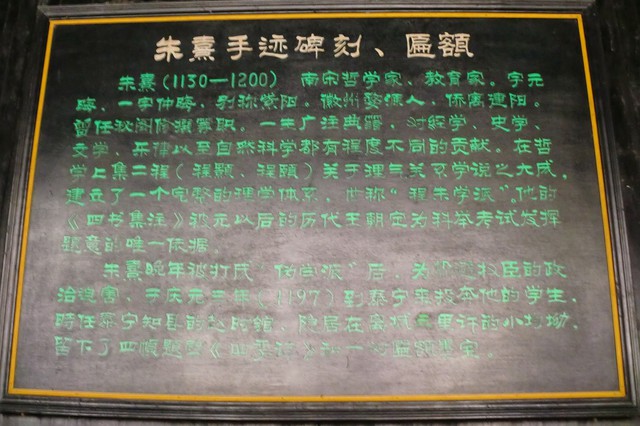 朱熹手迹碑刻、匾额
朱熹(1130—1200) 南宋哲学家、教育家。字元
晦、一字仲晦，别称紫阳。徽州婺源人，侨寓建阳。
曾任秘阁修撰等职。一生广注典籍，对经学、史学、
文学、乐律以至自然科学都有程度不同的贡献。在哲
学上集二程(程颢、程颐)关于理气关系学说之大成，
建立了一个完整的理学体系，世称“程朱学派”。他的
《四书集注》被元以后的历代王朝定为科举考试发挥
题意的唯一依据。
朱熹晚年被打成“伪学派”后，为 权臣的政
治迫害，于庆元三年(1197)到泰宁来投奔他的学生，
時任泰宁知县的赵時館，隐居在 里许的小均坳，
留下了四 题 《四 》和一 匾额